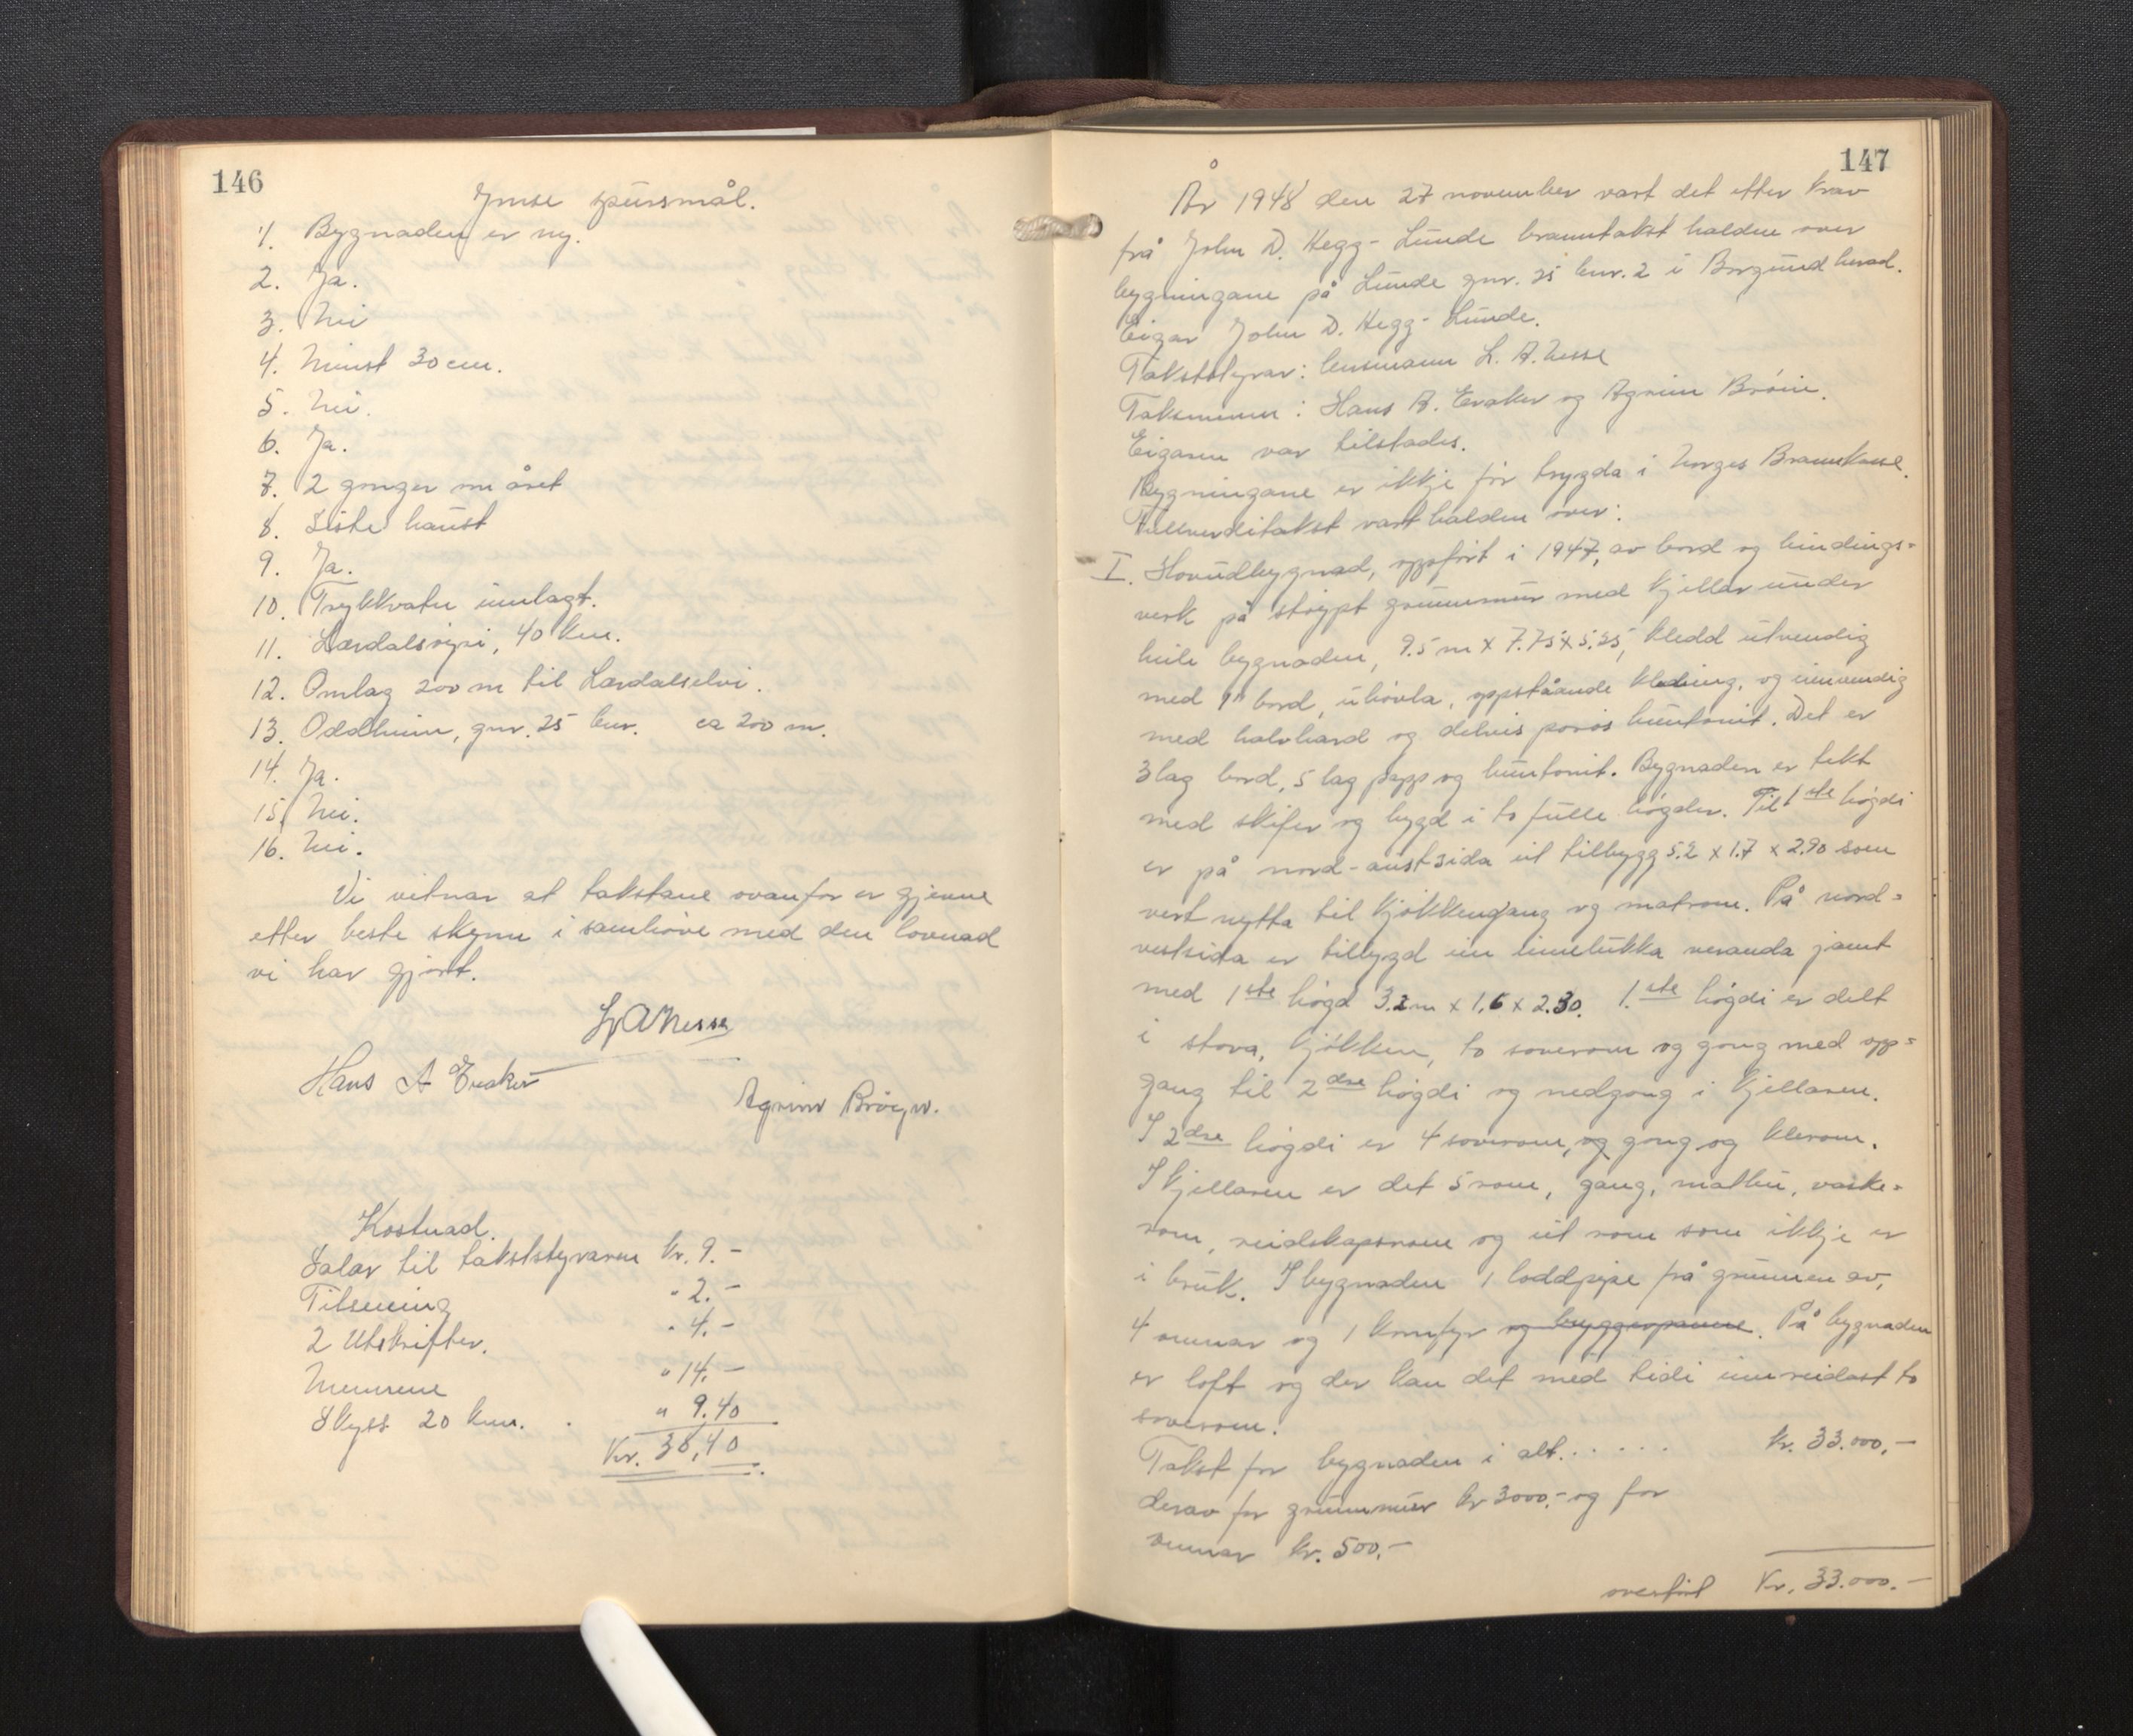 146
Ymse spursmål.
1. Bygnaden er ny.
2. Ja.
3. Nei
4. Minst 30 cm.
5. Nei.
6. Ja.
7. 2 gonger om året
8. Siste haust
9. Ja.
10. Trykkvatn innlagt.
11. Lærdalsøyri, 40 km.
12. Omlag 200 m til Lærdalselvi.
13. Oddheim, gnr. 25 bnr. ca 200 m.
14. Ja.
15. Nei.
16. Nei.
Vi vitnar at takstane ovanfor er gjevne
etter beste skynn i samhøve med den lovnad
vi har gjort.
L A Nesse
Hans A Eraker
Agrim Brøyn.
Kostnad.
Salær til takststyraren kr. 9.-
Tilsening " 2.-
2 Utskrifter. " 4.-
Mennene " 14.-
Skyss 20 km. . " 9.40
Kr. 38,40
147
År 1948 den 27 november vart det etter krav
frå John D. Hegg-Lunde branntakst halden over
bygningane på Lunde gnr. 25 bnr. 2 i Borgund herad.
Eigar John D. Hegg-Lunde.
Takststyrar: lensmann L. A. Nesse
Taksmenn: Hans A. Eraker og Agrim Brøin.
Eigaren var tilstades.
Bygningane er ikkje før trygda i Norges Brannkasse.
Fullverditakst vart halden over:
I. Hovudbygnad, oppført i 1947, av bord og bindings=
verk på støypt grunnmur med kjellar under
heile bygnaden, 9.5 m x 7.75 x 5.25, kledd utvendig
med 1" bord, uhøvla, oppståande kledning, og innvendig
med halvhard og delvis porøs huntonit. Det er
3 lag bord, 5 lag papp og huntonit. Bygnaden er tekt
med skifer og bygd i to fulle høgder. Til 1ste høgdi
er på nord-austsida eit tilbygg 5.2 x 1.7 x 2.90 som
vert nytta til kjøkkengang og matrom. På nord=
vestsida er tilbygd ein innelukka veranda jamt
med 1ste høgd 3.2 m x 1.6 x 2.30. 1.ste høgdi er delt
i stova, kjøkken, to soverom og gong med opp=
gang til 2dre høgdi og nedgong i kjellaren.
I 2dre høgdi er 4 soverom, og gong og klerom.
I kjellaren er det 5 rom, gang, matbu, vaske=
rom, reidskapsrom og eit rom som ikkje er
i bruk. I bygnaden 1 loddpipe frå grunnen av,
4 omnar og 1 komfyr og bryggepanne. På bygnaden
er loft og der kan det med tidi innreidast to
soverom.
Takst for bygnaden i alt. . . . . . kr. 33.000,-
derav for grunnmur kr 3000,- og for
omnar kr. 500,-
overført Kr. 33.000.-